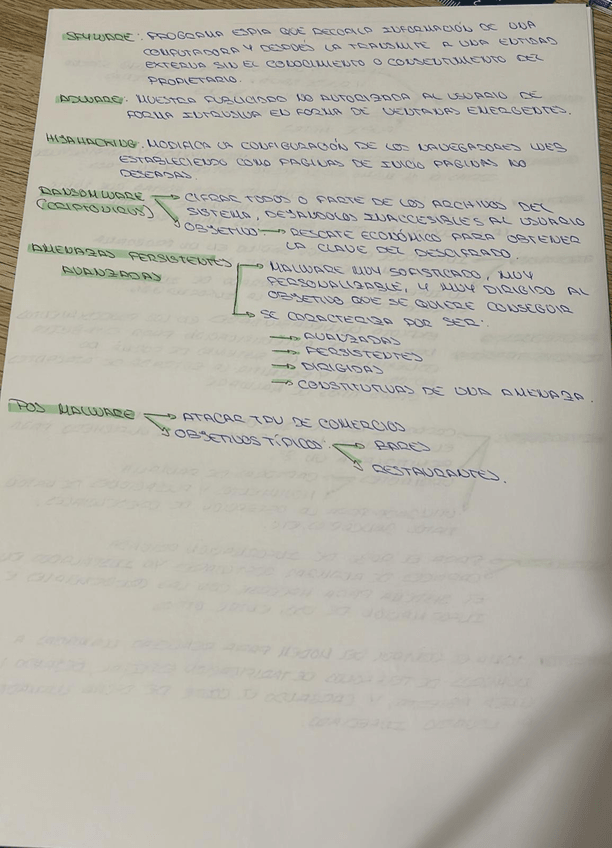 SPYWARE: PROGRAMA ESPIA QUE RECOPILA INFORMACIÓN DE UNA
COMPUTADORA Y DESPUÉS LA TRANSMITE A UNA ENTIDAD
EXTERNA SIN EL CONOCIMIENTO O CONSENTIMIENTO DEL
PROPIETARIO.
ADWARE: MUESTRA PUBLICIDAD NO AUTORIZADA AL USUARIO DE
FORMA INTRUSIVA EN FORMA DE VENTANAS EMERGENTES.
MODIFICA LA CONFIGURACIÓN DE LOS NAVEGADORES WEB
ESTABLECIENDO COMO PAGINAS DE INICIO PAGINAS NO
DESEADAS.
RANSOMWARE → CIFRAR TODOS O PARTE DE LOS ARCHIVOS DEL
(CRIPTOVIRUS) SISTEMA, DEJANDOLOS INACCESIBLES AL USUARIO
OBJETIVO → RESCATE ECONÓMICO PARA OBTENER
LA CLAVE DEL DESCIFRADO.
AMENAZAS PERSISTENTES
AVANZADAS
→ MALWARE MUY SOFISTICADO, MUY
PERSONALIZABLE, Y MUY DIRIGIDO AL
OBJETIVO QUE SE QUIERE CONSEGUIR
→ SE CARACTERIZA POR SER:
→ AVANZADAS
→ PERSISTENTES
→ DIRIGIDAS
→ CONSTITUTIVAS DE UNA AMENAZA.
POS MALWARE → ATACAR TPV DE COMERCIOS
→ OBJETIVOS TÍPICOS → BARES
→ RESTAURANTES.